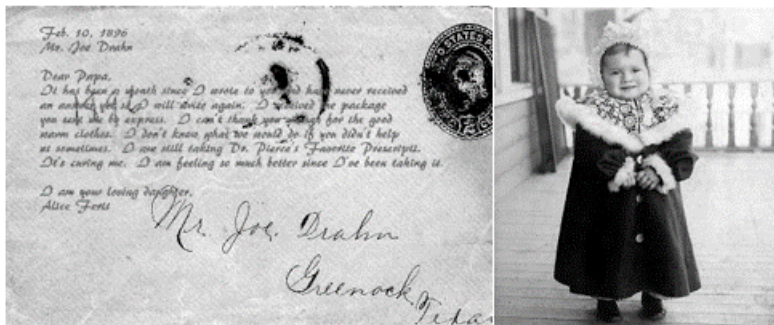 Feb. 10, 1896
Mr. Joe Drahn
Dear Papa,
It has been a month since I wrote to you and have never received
an answer yet so I will write again. I received the package
you sent me by express. I can't thank you enough for the good
warm clothes. I don't know what we would do if you didn't help
us sometimes. I am still taking Dr. Pierce's Favorite Prescripti.
It's curing me. I am feeling so much better since I've been taking it.
I am your loving daughter,
Alice
Mr. Joe. Drahn
Greenock,
Texas